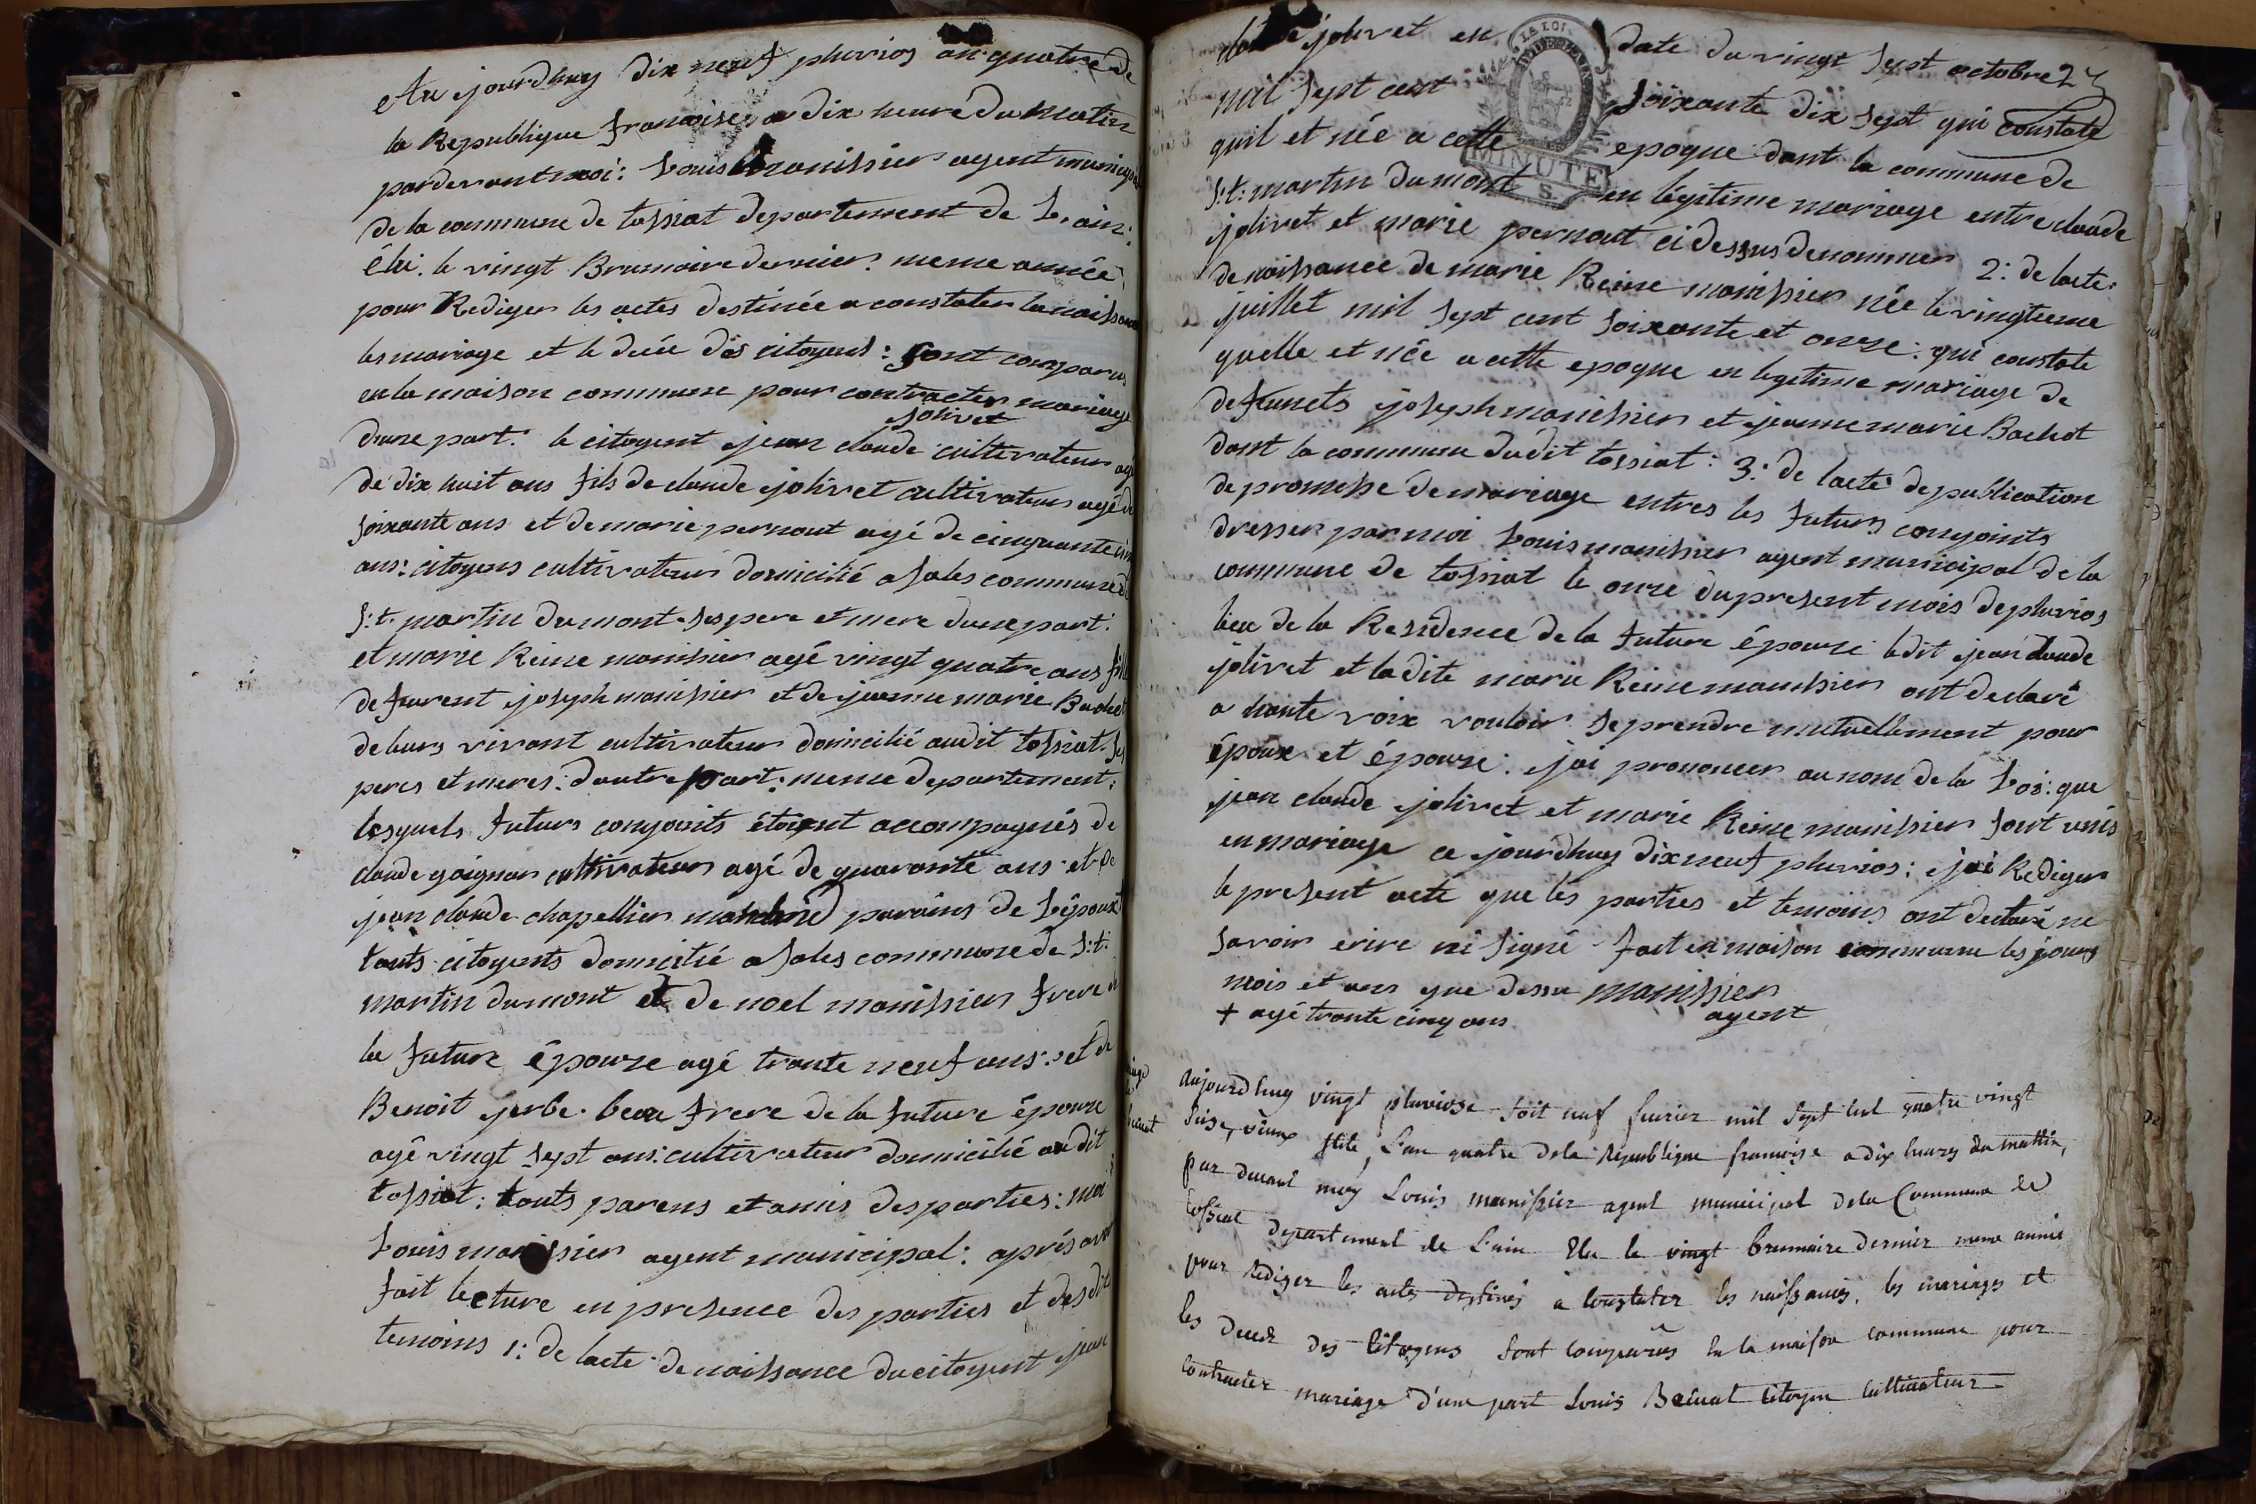 Au jourdhuy dix neuf pluvios an quatre de
la Republique francoise a dix heure du matin
pardevant moi: Louis manissier agent municipal
de la commune de tossiat departement de L'ain:
élu. le vingt Brumaire dernier. meme année
pour Rediger les actes destinée a constater la naissance
les mariage et le decée des citoyens: sont comparus
en la maison commune pour contracter mariage
jolivet
dune part: le citoyent jean claude cultivateur agé
de dix huit ans fils de claude jolivet cultivateur agé de
soixante ans et de marie pernout agé de cinquante cinq
ans: citoyens cultivateurs domicilié a sales commune de
s:t: martin du mont ses pere et mere dune part:
et marie Reine manissier agé vingt quatre ans fille
defurent joseph manissier et de jeanne marie Bachet
de leurs vivant cultivateur domicilié audit tossiat. ses
peres et meres: dautre part: meme departement:
lesquels futurs conjoints étoient accompagnés de
claude goignon cultivateur agé de quarante ans et de
jean claude chapellier parains de L'époux
touts citoyents domicilié a sales commune de s:t:
martin du mont et de noel manissier frere de
la future épouze agé trante neuf ans: et de
Benoit jerbe. beau frere de la future épouze
agé vingt sept ans: cultivateur domicilié audit
tossiat: touts parens et amis des parties: moi
Louis manissier agent municipal: aprés avoir
fait lecture en presence des parties et des dit
temoins 1: de lacte de naissance du citoyent jean
claude jolivet en date du vingt sept octobre 27
mil sept cent soixante dix sept qui constate
quil et née a cette epoque dant la commune de
s:t: martin du mont en légitime mariage entre claude
jolivet et marie pernout ci dessus denommer 2: de lacte
de naissance de marie Reine manissier née le vingtieme
juillet mil sept cent soixante et onze: qui constate
quelle et née a cette epoque en legitime mariage de
defunets joseph manissier et jeanne marie Bachet
dant la commune dudit tossiat: 3: de lacte de publication
de promesse de mariage entres les futurs conjoints
dresser par moi Louis manissier agent municipal de la
commune de tossiat le onze du present mois de pluvios
lieu de la Residence de la future épouze ledit jean claude
jolivet et la dite marie Reine manissier ont declaré
a haute voix vouloir se prendre mutuellement pour
époux et épouze: jai prononcer au nom de la Loi: que
jean claude jolivet et marie Reine manissier sont unis
en mariage ce jourdhuy dix neuf pluvios: jai Rediger
le present acte que les parties et temoins ont declaré ne
savoir ecrire ni signé fait en maison commune les jours
mois et ans que dessu manissier
agent
+ agé trante cinq ans
LA LOI
MINUTE
S.
Aujourdhuy vingt pluviose soit neuf fevrier mil sept cent quatre vingt
seize, vieux stile, L'an quatre dela République francoise a dix heures du mattin,
par devant moy Louis manissier agent municipal dela Commune de
tossiat departement de L'ain Elu le vingt brumaire dernier meme année
pour Rediger les actes destinés a Constater les naissances, les mariages et
les decés des Citoyens sont comparûs en la maison commune pour
contracter mariage d'une part Louis Benuat Citoyen cultivateur